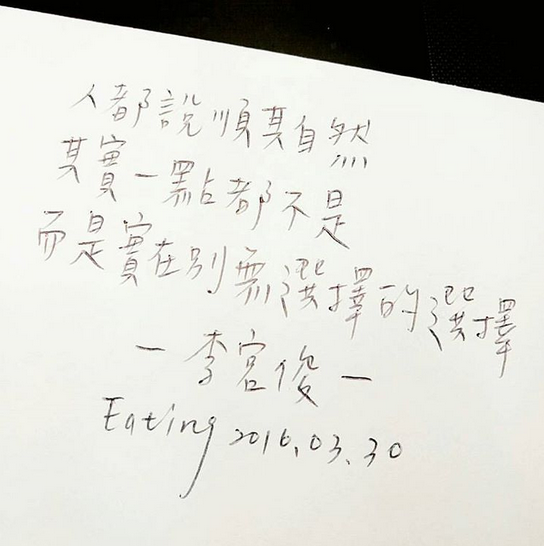 人都說順其自然
其實一點都不是
而是實在別無選擇的選擇
— 李宮俊 —
Eating 2016.03.30